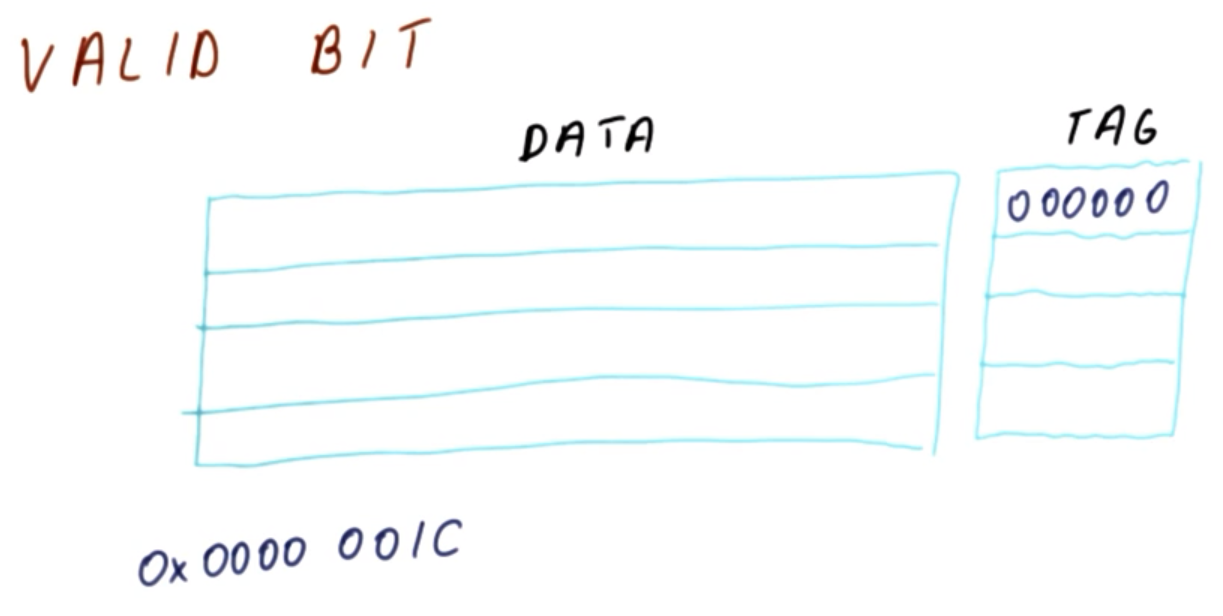 VALID BIT
DATA
TAG
000000
0x0000 001C